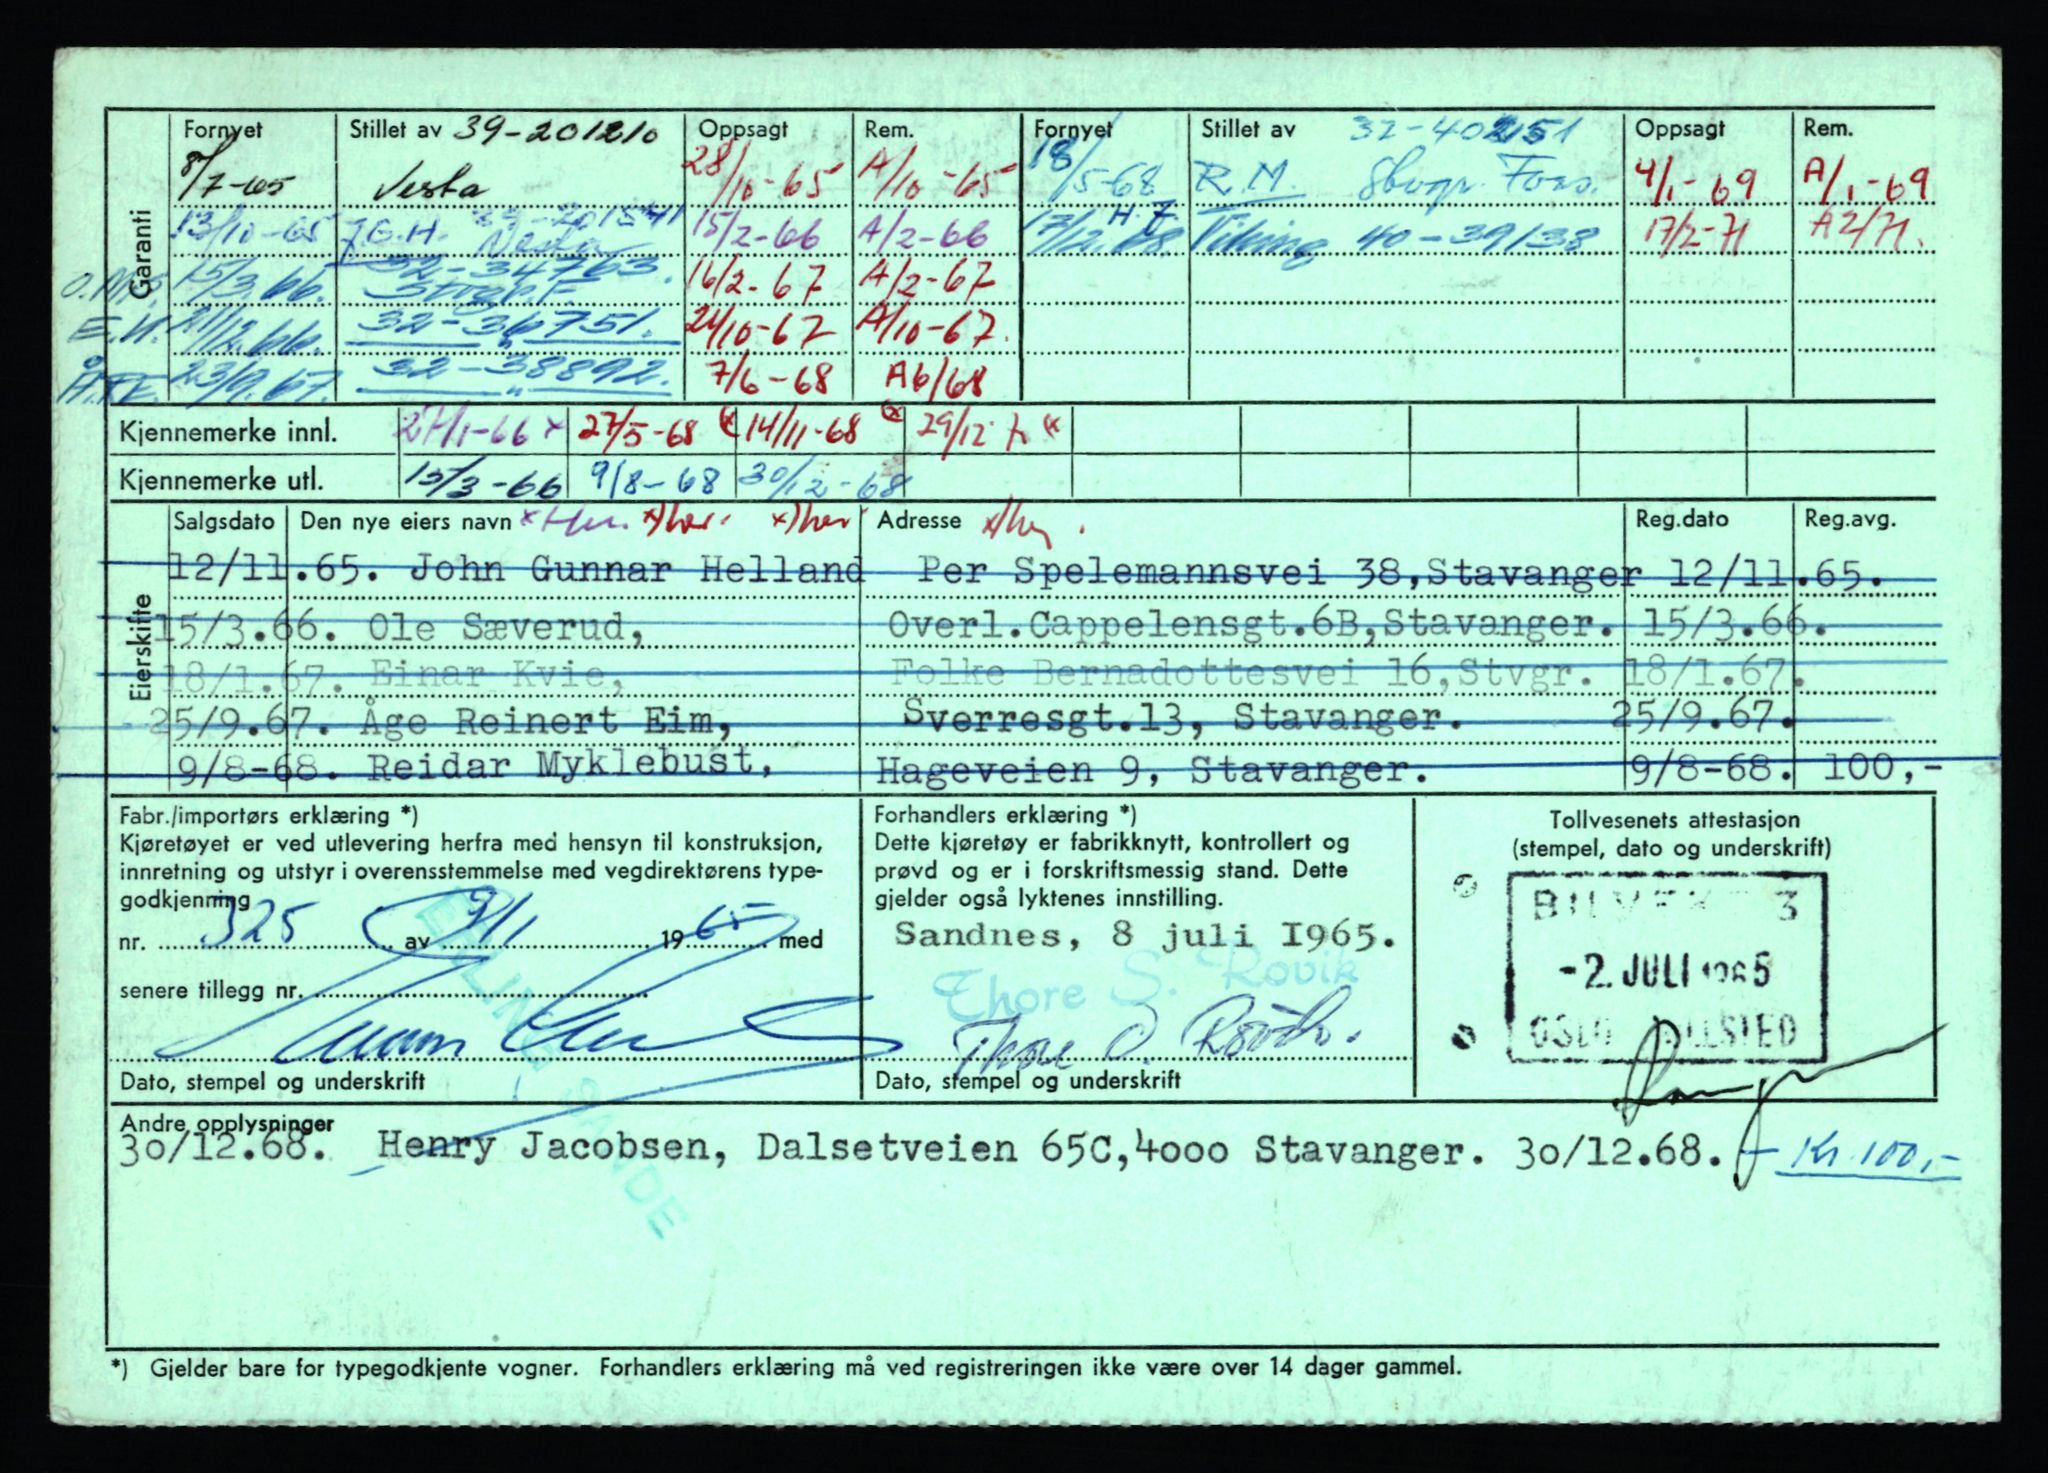 Garanti
Fornyet Stillet av 39-201210 Oppsagt Rem. Fornyet Stillet av 32-40251 Oppsagt Rem.
8/7-65 Vesta 28/10-65 A/10-65 18/5-68 R.M. Stvgr. Foss. 4/1-69 A/1-69
13/10-65 J.G.H. Vesta 39-201541 15/2-66 A/2-66 17/12.68. H.J. Viking 40-39138 17/2-71 A2/71.
15/3.66. 32-34763. 16/2-67 A/2-67
E.H. 21/12.66. 32-36751. 24/10-67 A/10-67.
23/9.67. 32-38892. 7/6-68 A6/68
Kjennemerke innl. 27/1-66 x 27/5-68 14/11-68 29/12
Kjennemerke utl. 15/3-66 9/8-68 30/12-68
Eierskifte
Salgsdato Den nye eiers navn Adresse Reg.dato Reg.avg.
12/11.65. John Gunnar Helland Per Spelemannsvei 38,Stavanger 12/11.65.
15/3.66. Ole Sæverud, Overl.Cappelensgt.6B,Stavanger. 15/3.66.
18/1.67. Einar Kvie, Folke Bernadottesvei 16,Stvgr. 18/1.67.
25/9.67. Åge Reinert Eim, Sverresgt.13, Stavanger. 25/9.67.
9/8-68. Reidar Myklebust, Hageveien 9, Stavanger. 9/8-68. 100,-
Fabr./importørs erklæring *)
Kjøretøyet er ved utlevering herfra med hensyn til konstruksjon,
innretning og utstyr i overensstemmelse med vegdirektørens type-
godkjenning
nr. 325 av 9/1 1965 med
senere tillegg nr.
ERLING SANDE
Dato, stempel og underskrift
Forhandlers erklæring *)
Dette kjøretøy er fabrikknytt, kontrollert og
prøvd og er i forskriftsmessig stand. Dette
gjelder også lyktenes innstilling.
Sandnes, 8 juli 1965.
Thore S. Rovik
Thore S. Rovik.
Dato, stempel og underskrift
Tollvesenets attestasjon
(stempel, dato og underskrift)
3
-2. JULI 1965
OSLO TOLLSTED
Andre opplysninger
30/12.68. Henry Jacobsen, Dalsetveien 65C,4000 Stavanger. 30/12.68. - Kr 100,-
*) Gjelder bare for typegodkjente vogner. Forhandlers erklæring må ved registreringen ikke være over 14 dager gammel.